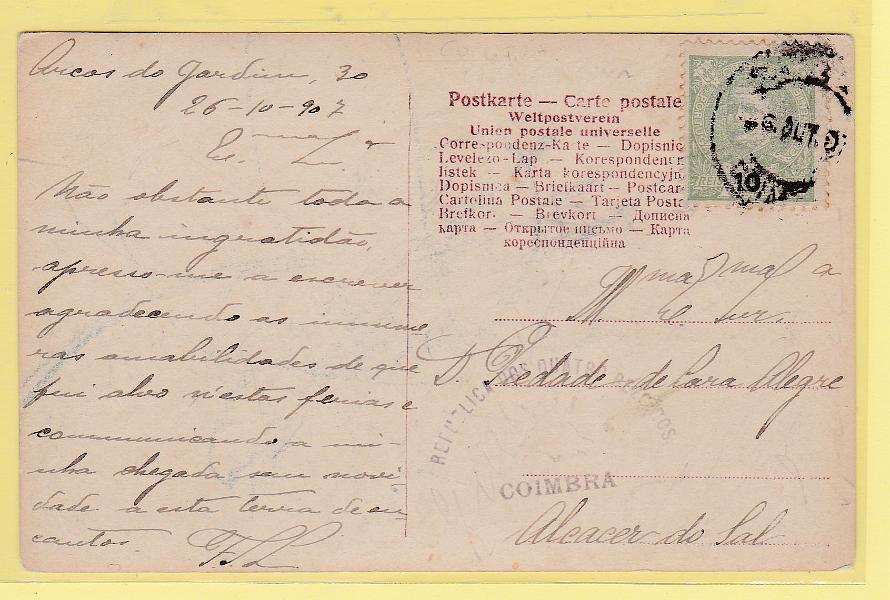 Arcos do Jardim, 30
26-10-907
Não obstante toda a
minha ingratidão,
apresso-me a escrever
agradecendo as innume
ras amabilidades de que
fui alvo n'estas ferias e
communicando a mi-
nha chegada sem novi-
dade a esta terra de en-
cantos.
Postkarte — Carte postale
Weltpostverein
Union postale universelle
Correspondenz-Karte — Dopisnic
Levelezo-Lap — Korespondencn
lístek — Karta korespondencyjn
Dopisnica — Briefkaart — Postcar
Cartolina Postale — Tarjeta Posta
Brefkort — Brevkort — Дописна
карта — Открытое письмо — Карта
кореспонденційна
10
OUT
D. Piedade de Lara Alegre
Alcacer do Sal
REPUBLICA DOS QUATRO
COIMBRA